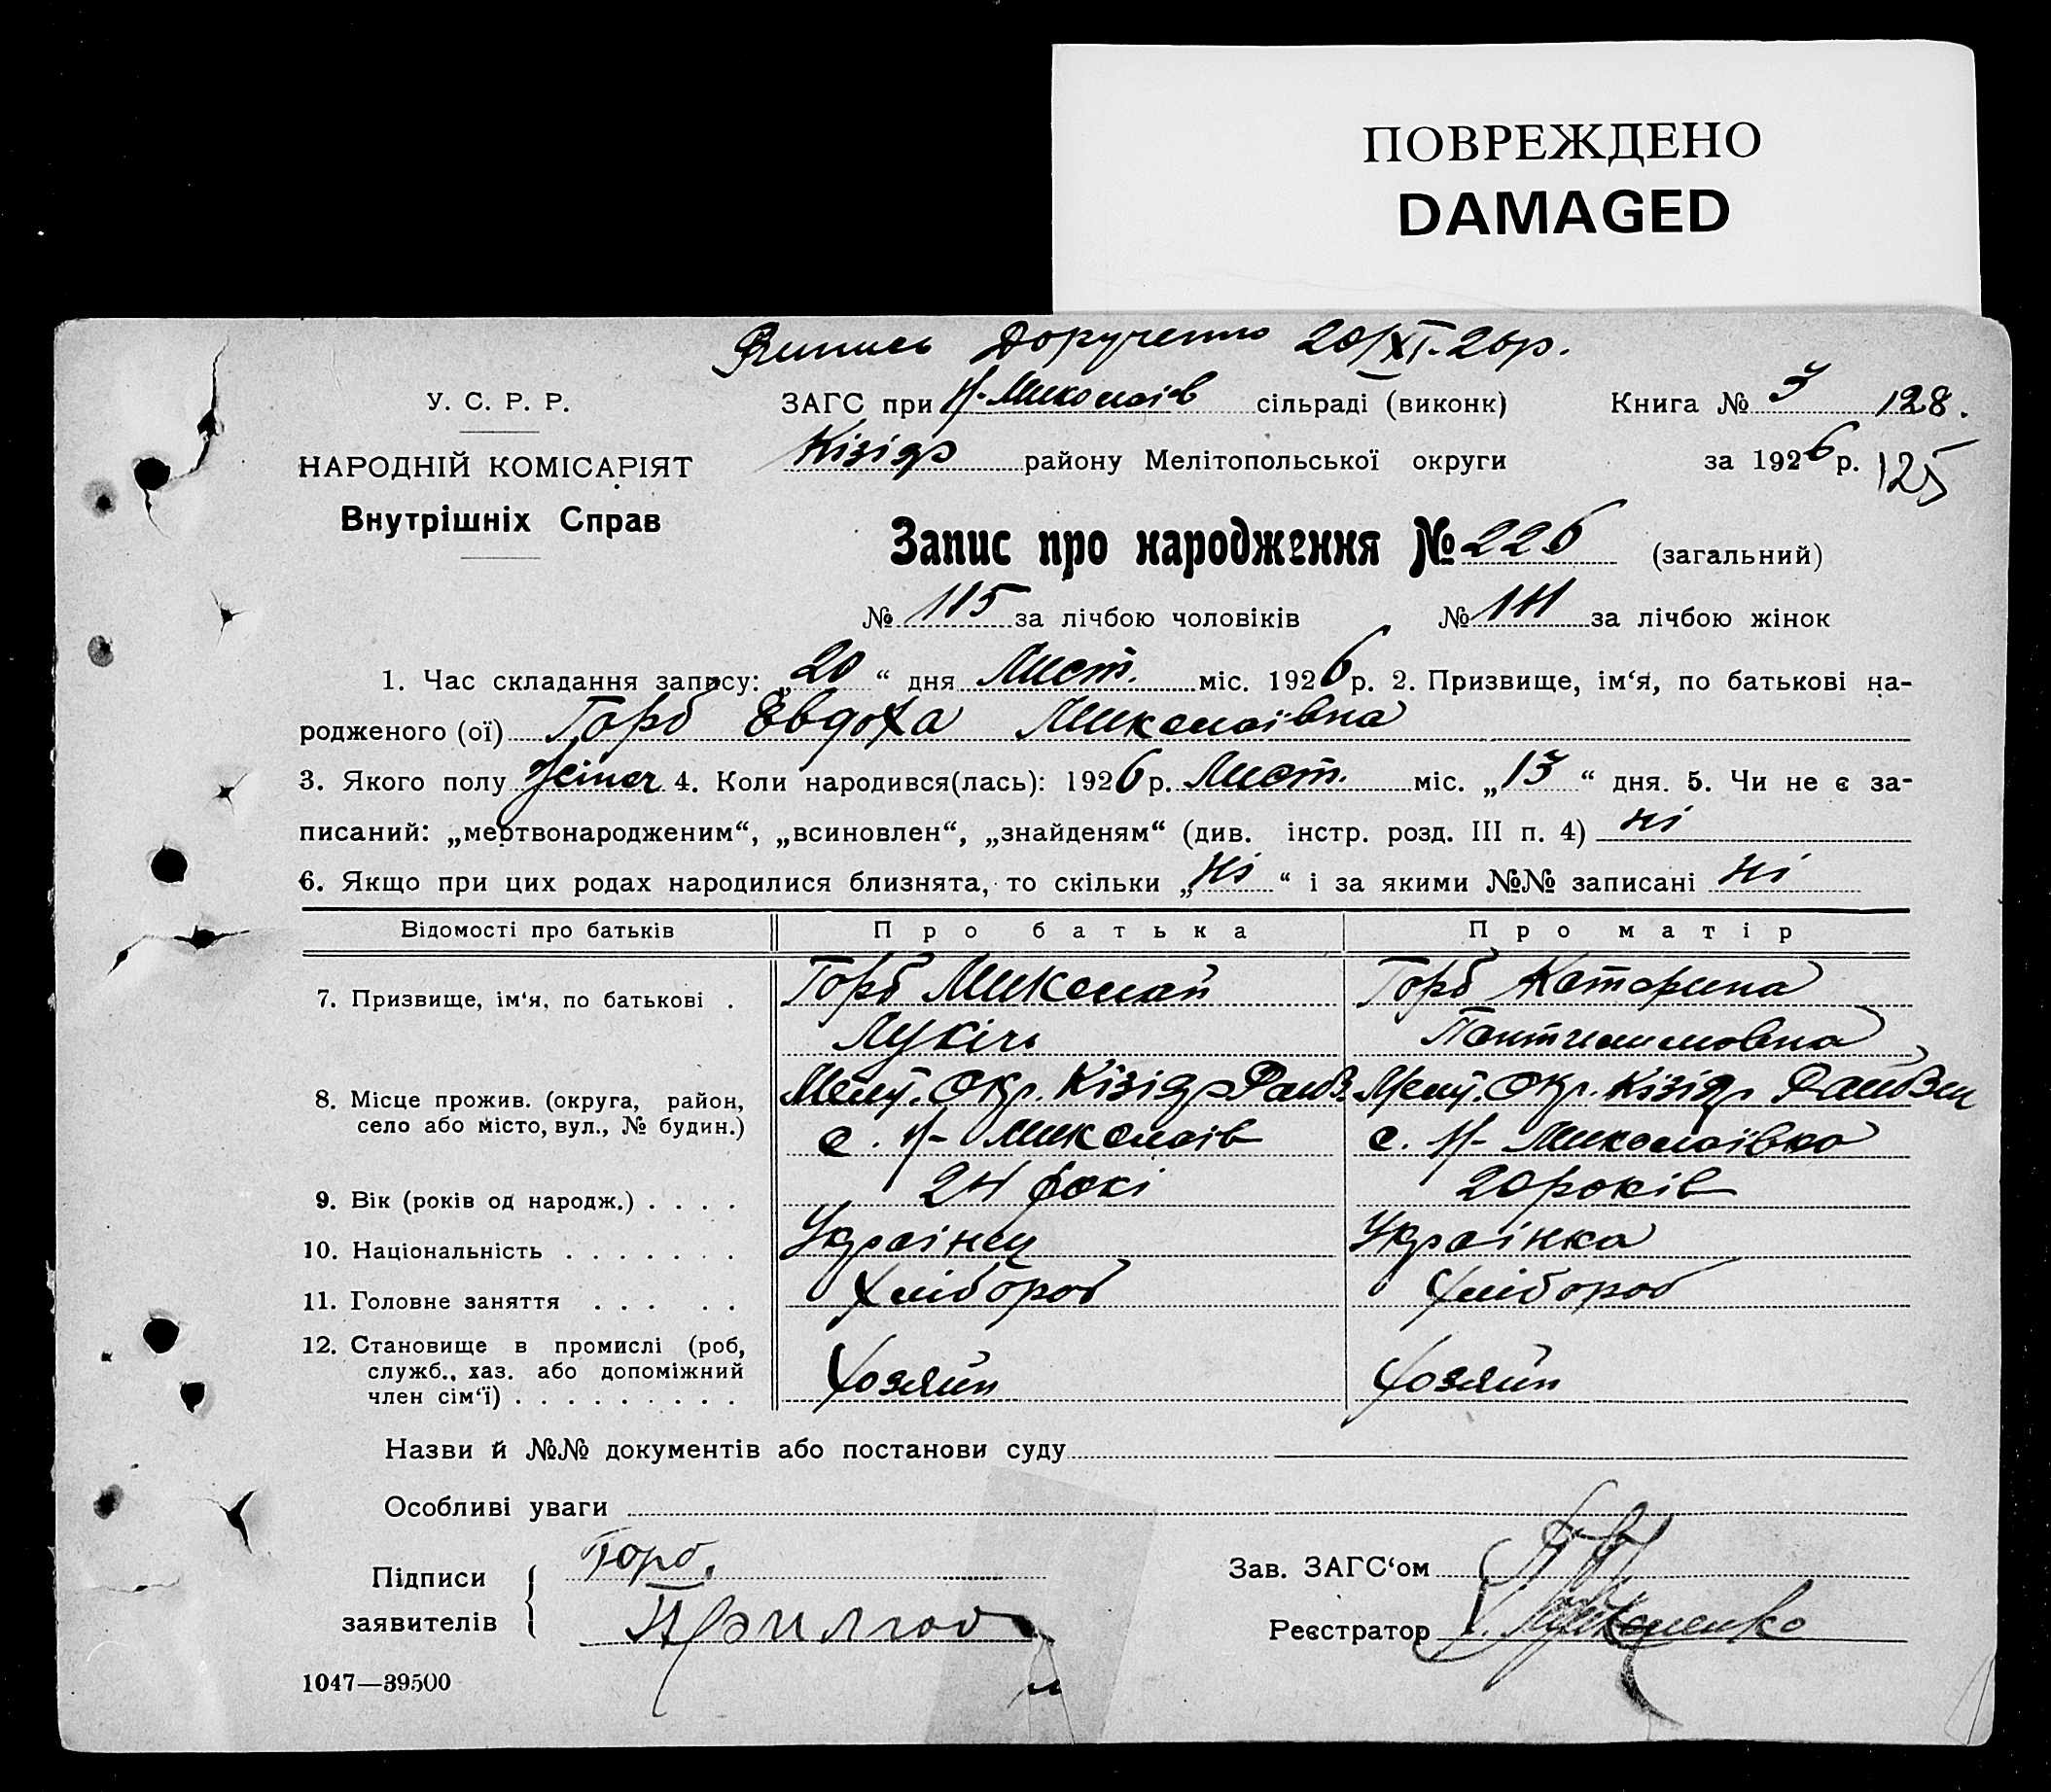 ПОВРЕЖДЕНО
DAMAGED
Випись Доручено 20/XI.26р.
У. С. Р. Р.
ЗАГС при Н-Миколаів сільраді (виконк) Книга № 3 128.
НАРОДНІЙ КОМІСАРІЯТ
Внутрішніх Справ
Кізіяр району Мелітопольської округи за 1926 р. 125
Запис про народження № 226 (загальний)
№ 115 за лічбою чоловіків № 111 за лічбою жінок
1. Час складання запису: „20“ дня Лист. міс. 1926 р. 2. Призвище, ім‘я, по батькові на-
родженого (ої) Горб Евдоха Миколаівна
3. Якого полу 4. Коли народився(лась): 1926 р. Лист. міс. „13“ дня. 5. Чи не є за-
писаний: „мертвонародженим“, „всиновлен“, „знайденям“ (див. інстр. розд. III п. 4) ні
6. Якщо при цих родах народилися близнята, то скільки „ні“ і за якими №№ записані ні
Відомості про батьків Про батька Про матір
7. Призвище, ім‘я, по батькові . Горб Миколай Горб Катерина
Лукіч
8. Місце прожив. (округа, район, Меліт. Окр. Кізіяр Меліт. Окр. Кізіяр
село або місто, вул., № будин.) с. Н-Миколаів с. Н-Миколаївка
9. Вік (років од народж.) . . . . 24 рокі 20 років
10. Національність . . . . . . . Украінец Украінка
11. Головне заняття . . . . . Хлібороб Хлібороб
12. Становище в промислі (роб,
служб., хаз. або допоміжний Хозяїн Хозяїн
член сім‘ї) . . . . . . . . .
Назви й №№ документів або постанови суду
Особливі уваги
Підписи Горб. Зав. ЗАГС‘ом
заявителів Реєстратор
1047—39500